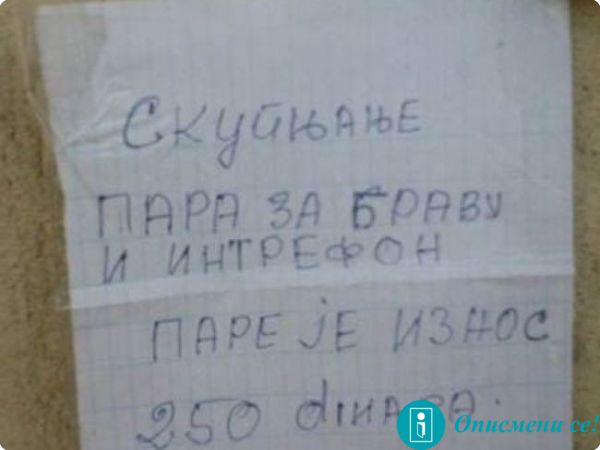 Скупњање
ПАРА ЗА БРАВУ
И ИНТРЕФОН
ПАРЕ ЈЕ ИЗНОС
250 dинара.
Описмени се!